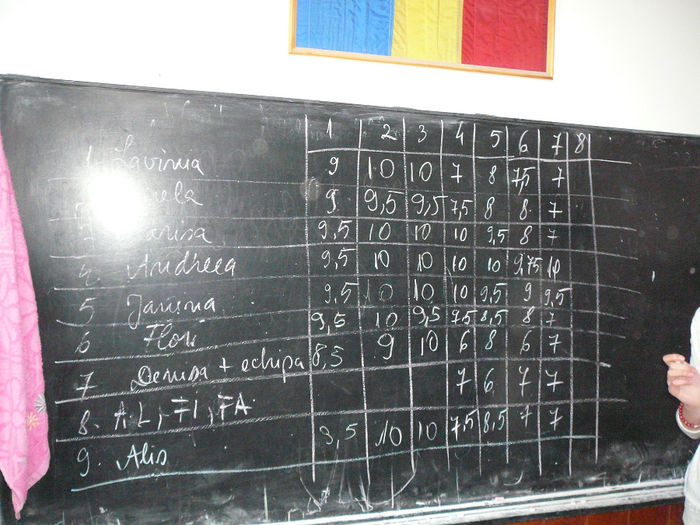 1 2 3 4 5 6 7 8
1 Lavinia 9 10 10 7 8 7,5 7
9 9,5 9,5 7,5 8 8 7
9,5 10 10 10 9,5 8 7
4 Andreea 9,5 10 10 10 10 9,75 10
5 Janina 9,5 10 10 10 9,5 9 9,5
6 Flori 9,5 10 9,5 7,5 8,5 8 7
7 Denisa + echipa 8,5 9 10 6 8 6 7
8. A.L, FI, FA 7 6 7 7
9. Alis 10 10 7,5 8,5 7 7